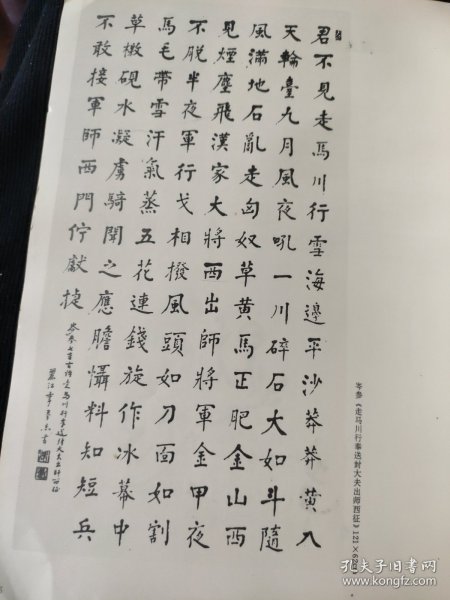 君不見走馬川行雪海邊平沙莽莽黃入
天輪臺九月風夜吼一川碎石大如斗隨
風滿地石亂走匈奴草黃馬正肥金山西
見煙塵飛漢家大將西出師將軍金甲夜
不脫半夜軍行戈相撥風頭如刀面如割
馬毛帶雪汗氣蒸五花連錢旋作冰幕中
草檄硯水凝虜騎聞之應膽懾料知短兵
不敢接軍師西門佇獻捷
岑參七言古詩走馬川行奉送封大夫出師西征
麗江李書
岑参《走马川行奉送封大夫出师西征》121×62
孔夫子旧书网